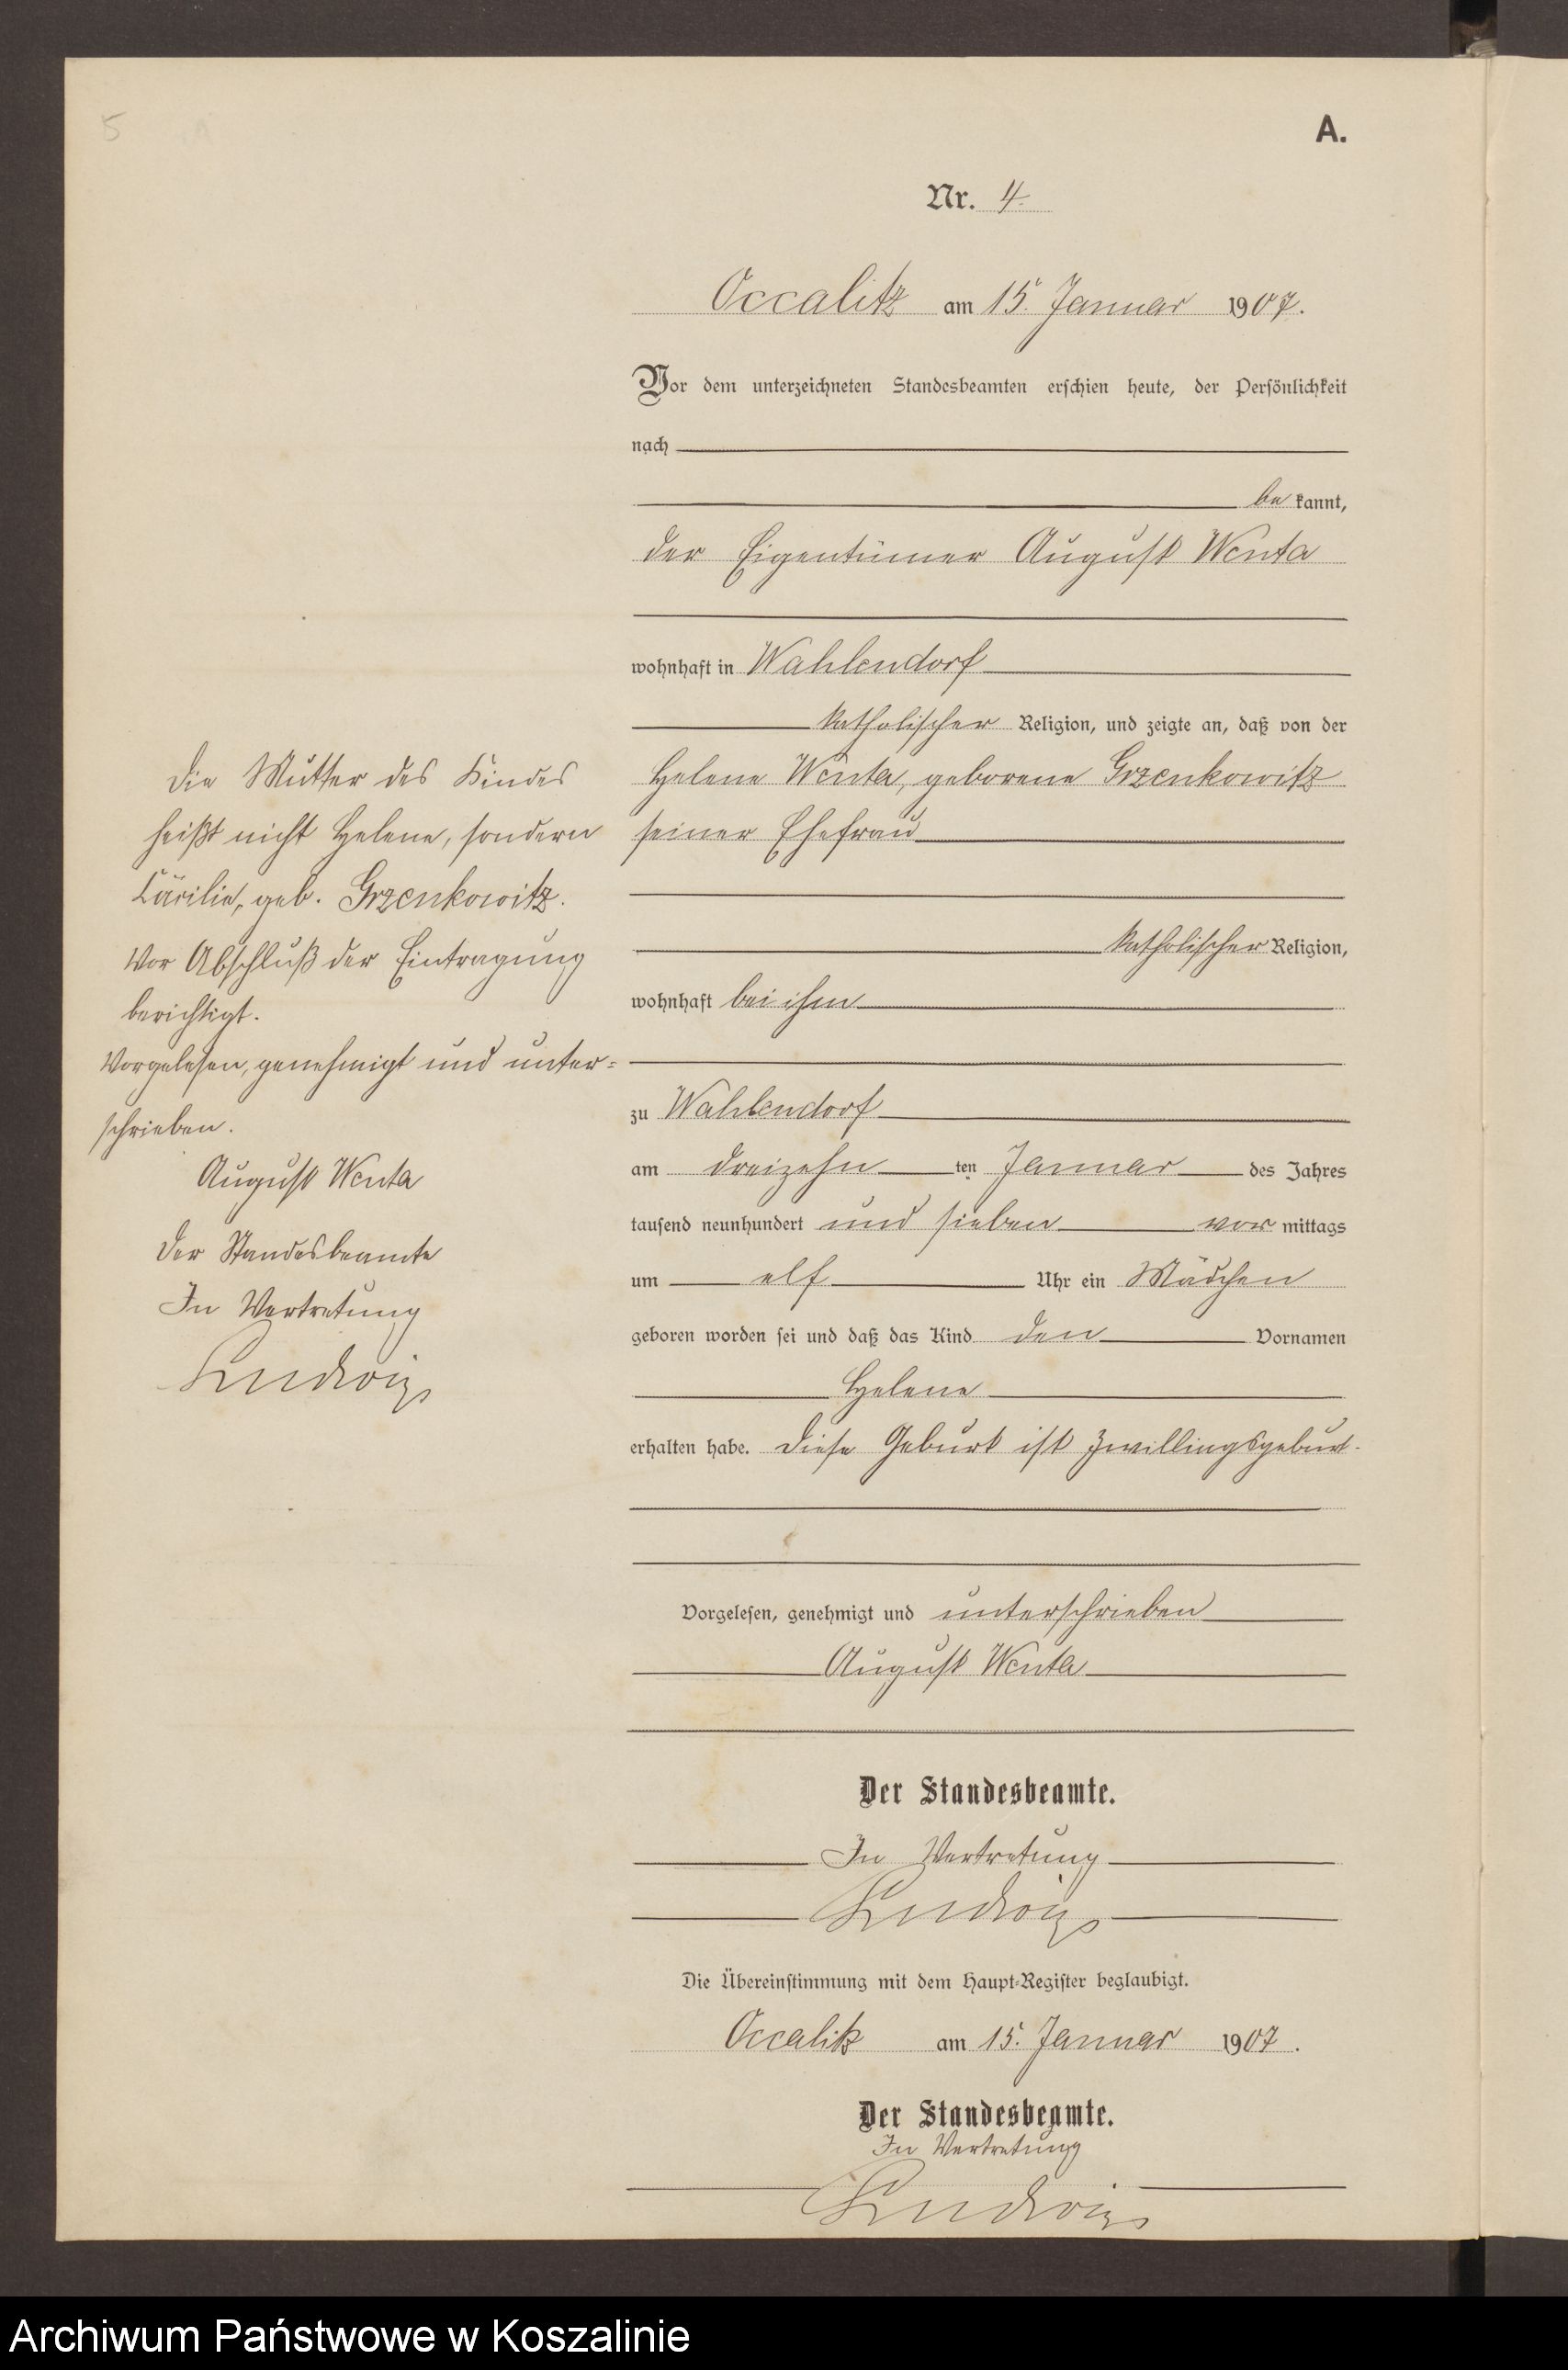 5
A.
Nr. 4.
Occalitz am 15. Januar 1907.
Vor dem unterzeichneten Standesbeamten erschien heute, der Persönlichkeit
nach
be kannt,
der Eigentümer August Wenta
wohnhaft in Wahlendorf
katholischer Religion, und zeigte an, daß von der
Helene Wenta, geborene Grzenkowitz
seiner Ehefrau
katholischer Religion,
wohnhaft bei ihm
zu Wahlendorf
am dreizehn ten Januar des Jahres
tausend neunhundert und sieben vor mittags
um elf Uhr ein Mädchen
geboren worden sei und daß das Kind den Vornamen
Helene
erhalten habe. Diese Geburt ist Zwillingsgeburt.
Vorgelesen, genehmigt und unterschrieben
August Wenta
Der Standesbeamte.
In Vertretung
Ludwig
Die Übereinstimmung mit dem Haupt-Register beglaubigt.
Occalitz am 15. Januar 1907.
Der Standesbeamte.
In Vertretung
Ludwig
Die Mutter des Kindes
heißt nicht Helene, sondern
Cäcilie, geb. Grzenkowitz.
Vor Abschluß der Eintragung
berichtigt.
Vorgelesen, genehmigt und unter=
schrieben.
August Wenta
Der Standesbeamte
In Vertretung
Ludwig
Archiwum Państwowe w Koszalinie